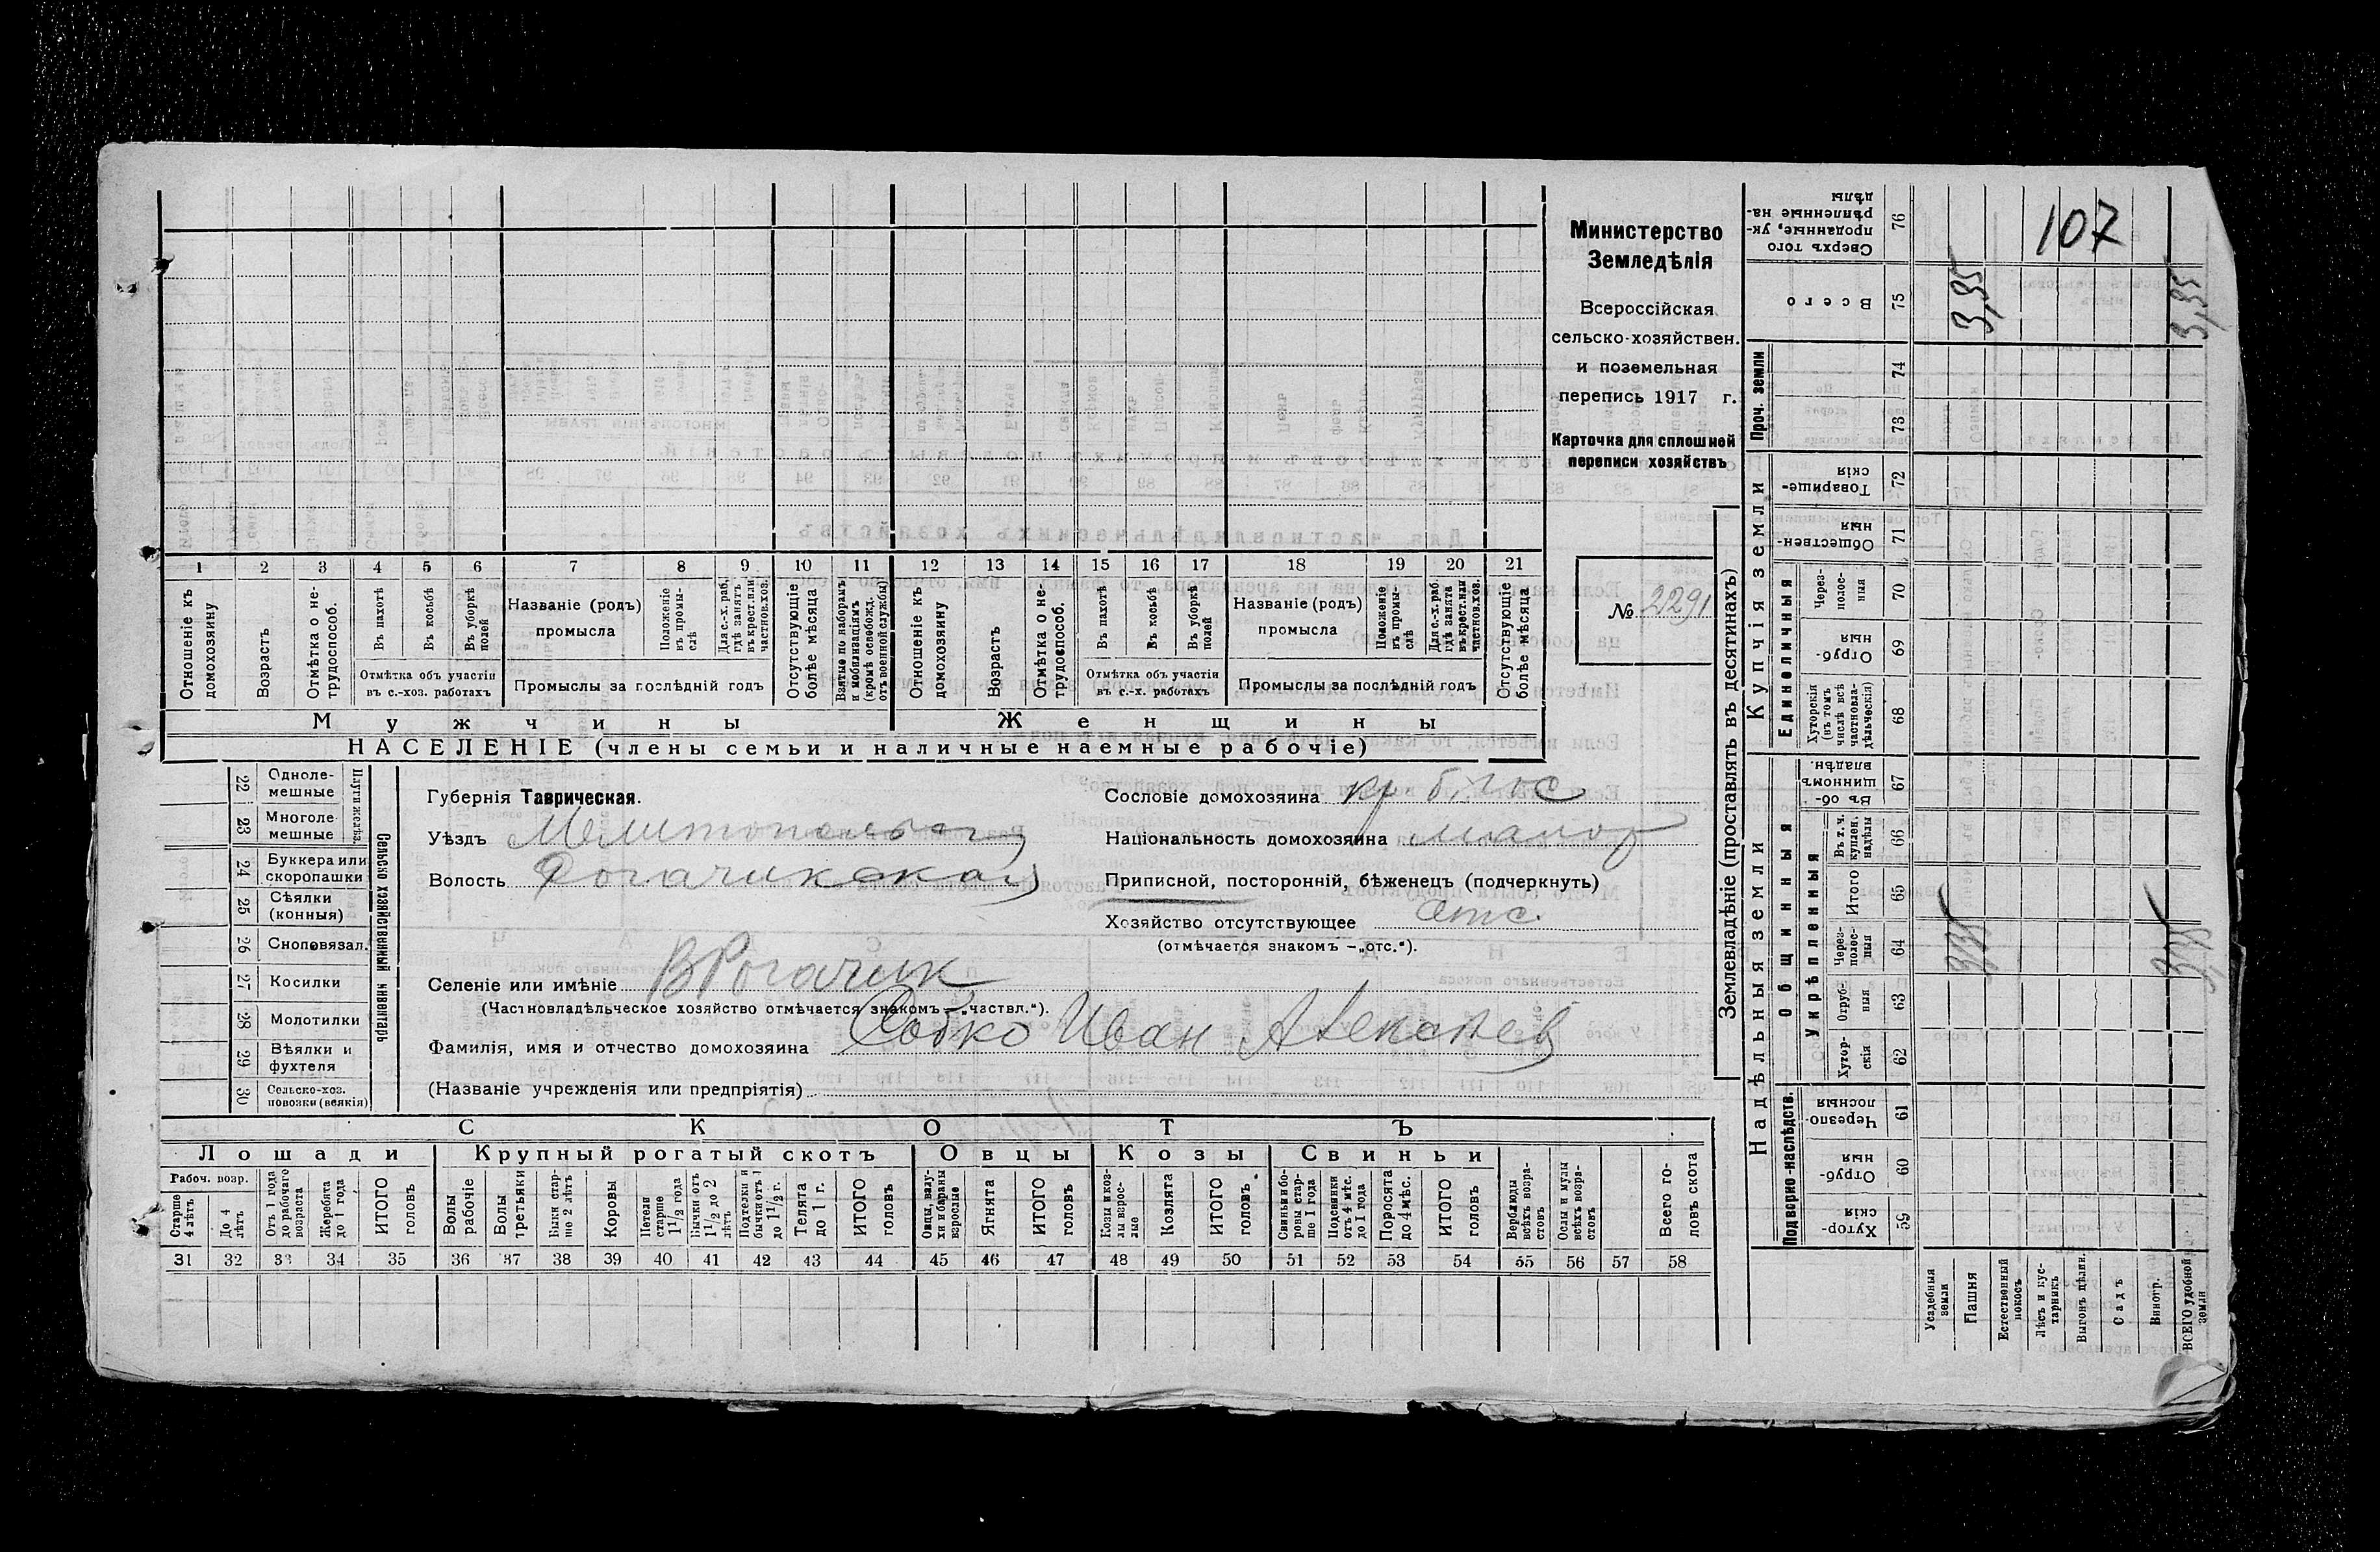 Министерство
Земледѣлія
Всероссійская
сельско-хозяйствен.
и поземельная
перепись 1917 г.
Карточка для сплошной
переписи хозяйствъ
№ 2291
107
1 2 3 4 5 6 7 8 9 10 11 12 13 14 15 16 17 18 19 20 21
Отношеніе къ домохозяину
Возрастъ
Отмѣтка о не-трудоспособ.
Въ пахотѣ
Въ косьбѣ
Въ уборкѣ полей
Отмѣтка объ участіи
въ с.-хоз. работахъ
Названіе (родъ)
промысла
Положеніе въ промы-слѣ
Для с.-х. раб. гдѣ занятъ въ крест. или частнов. хоз.
Промыслы за послѣдній годъ
Отсутствующіе болѣе мѣсяца
Взятые по наборамъ и мобилизаціямъ (кромѣ освобожд. отъ военной службы)
Отношеніе къ домохозяину
Возрастъ
Отмѣтка о не-трудоспособ.
Въ пахотѣ
Въ косьбѣ
Въ уборкѣ полей
Отмѣтка объ участіи
въ с.-х. работахъ
Названіе (родъ)
промысла
Положеніе въ промы-слѣ
Для с.-х. раб. гдѣ занята въ крест. или частнов. хоз.
Промыслы за послѣдній годъ
Отсутствующіе болѣе мѣсяца
Мужчины Женщины
НАСЕЛЕНІЕ (члены семьи и наличные наемные рабочіе)
22 Одноле-мешные
23 Многоле-мешные
Плуги желѣз.
24 Буккера или скоропашки
25 Сѣялки (конныя)
26 Сноповязал.
27 Косилки
28 Молотилки
29 Вѣялки и фухтеля
30 Сельско-хоз. повозки (всякія)
Сельско хозяйственный инвентарь
Губернія Таврическая.
Уѣздъ Мелитопольский
Волость Рогачикская
Селеніе или имѣніе В Рогачик
(Частновладѣльческое хозяйство отмѣчается знакомъ — „частвл.“).
Фамилія, имя и отчество домохозяина Собко Иван Алексѣев
(Названіе учрежденія или предпріятія)
Сословіе домохозяина кр
Національность домохозяина малор
Приписной, посторонній, бѣженецъ (подчеркнуть)
Хозяйство отсутствующее отс.
(отмѣчается знакомъ — „отс.“).
СКОТЪ
Лошади Крупный рогатый скотъ Овцы Козы Свиньи
Рабоч. возр.
Старше 4 лѣтъ
До 4 лѣтъ
Отъ 1 года до рабочаго возраста
Жеребята до 1 года
ИТОГО головъ
Волы рабочіе
Волы третьяки
Быки стар-ше 2 лѣтъ
Коровы
Нетели старше 1 1/2 года
Бычки отъ 1 1/2 до 2 лѣтъ
Подтелки и бычки отъ 1 до 1 1/2 г.
Телята до 1 г.
ИТОГО головъ
Овцы, валу-хи и бараны взрослые
Ягнята
ИТОГО головъ
Козы и коз-лы взрос-лые
Козлята
ИТОГО головъ
Свиньи и бо-ровы стар-ше 1 года
Подсвинки отъ 4 мѣс. до 1 года
Поросята до 4 мѣс.
ИТОГО головъ
Верблюды всѣхъ возра-стовъ
Ослы и мулы всѣхъ возра-стовъ
Всего го-ловъ скота
31 32 33 34 35 36 37 38 39 40 41 42 43 44 45 46 47 48 49 50 51 52 53 54 55 56 57 58
Землевладѣніе (проставлять въ десятинахъ)
Надѣльныя земли
Купчія земли
Проч. земли
Подворно-наслѣдств.
Общинныя
Укрѣпленныя
Единоличныя
Хутор-скія 59
Отруб-ныя 60
Черезпо-лосныя 61
Хутор-скія 62
Отруб-ныя 63
Через-полос-ныя 64
Итого 65
Въ т. ч. куплен. надѣлы 66
Въ об-щинномъ владѣн. 67
Хуторскія (въ томъ числѣ всѣ частновла-дѣльческія) 68
Отруб-ныя 69
Через-полос-ныя 70
Обществен-ныя 71
Товарище-скія 72
73
74
Всего 75
Сверхъ того проданные, ук-рѣпленные на-дѣлы 76
3,95
3,95
Усадебная земля
Пашня
Естественный покосъ
Лѣсъ и кус-тарникъ
Выгонъ цѣлин.
Садъ
Виногр.
ВСЕГО удобной земли